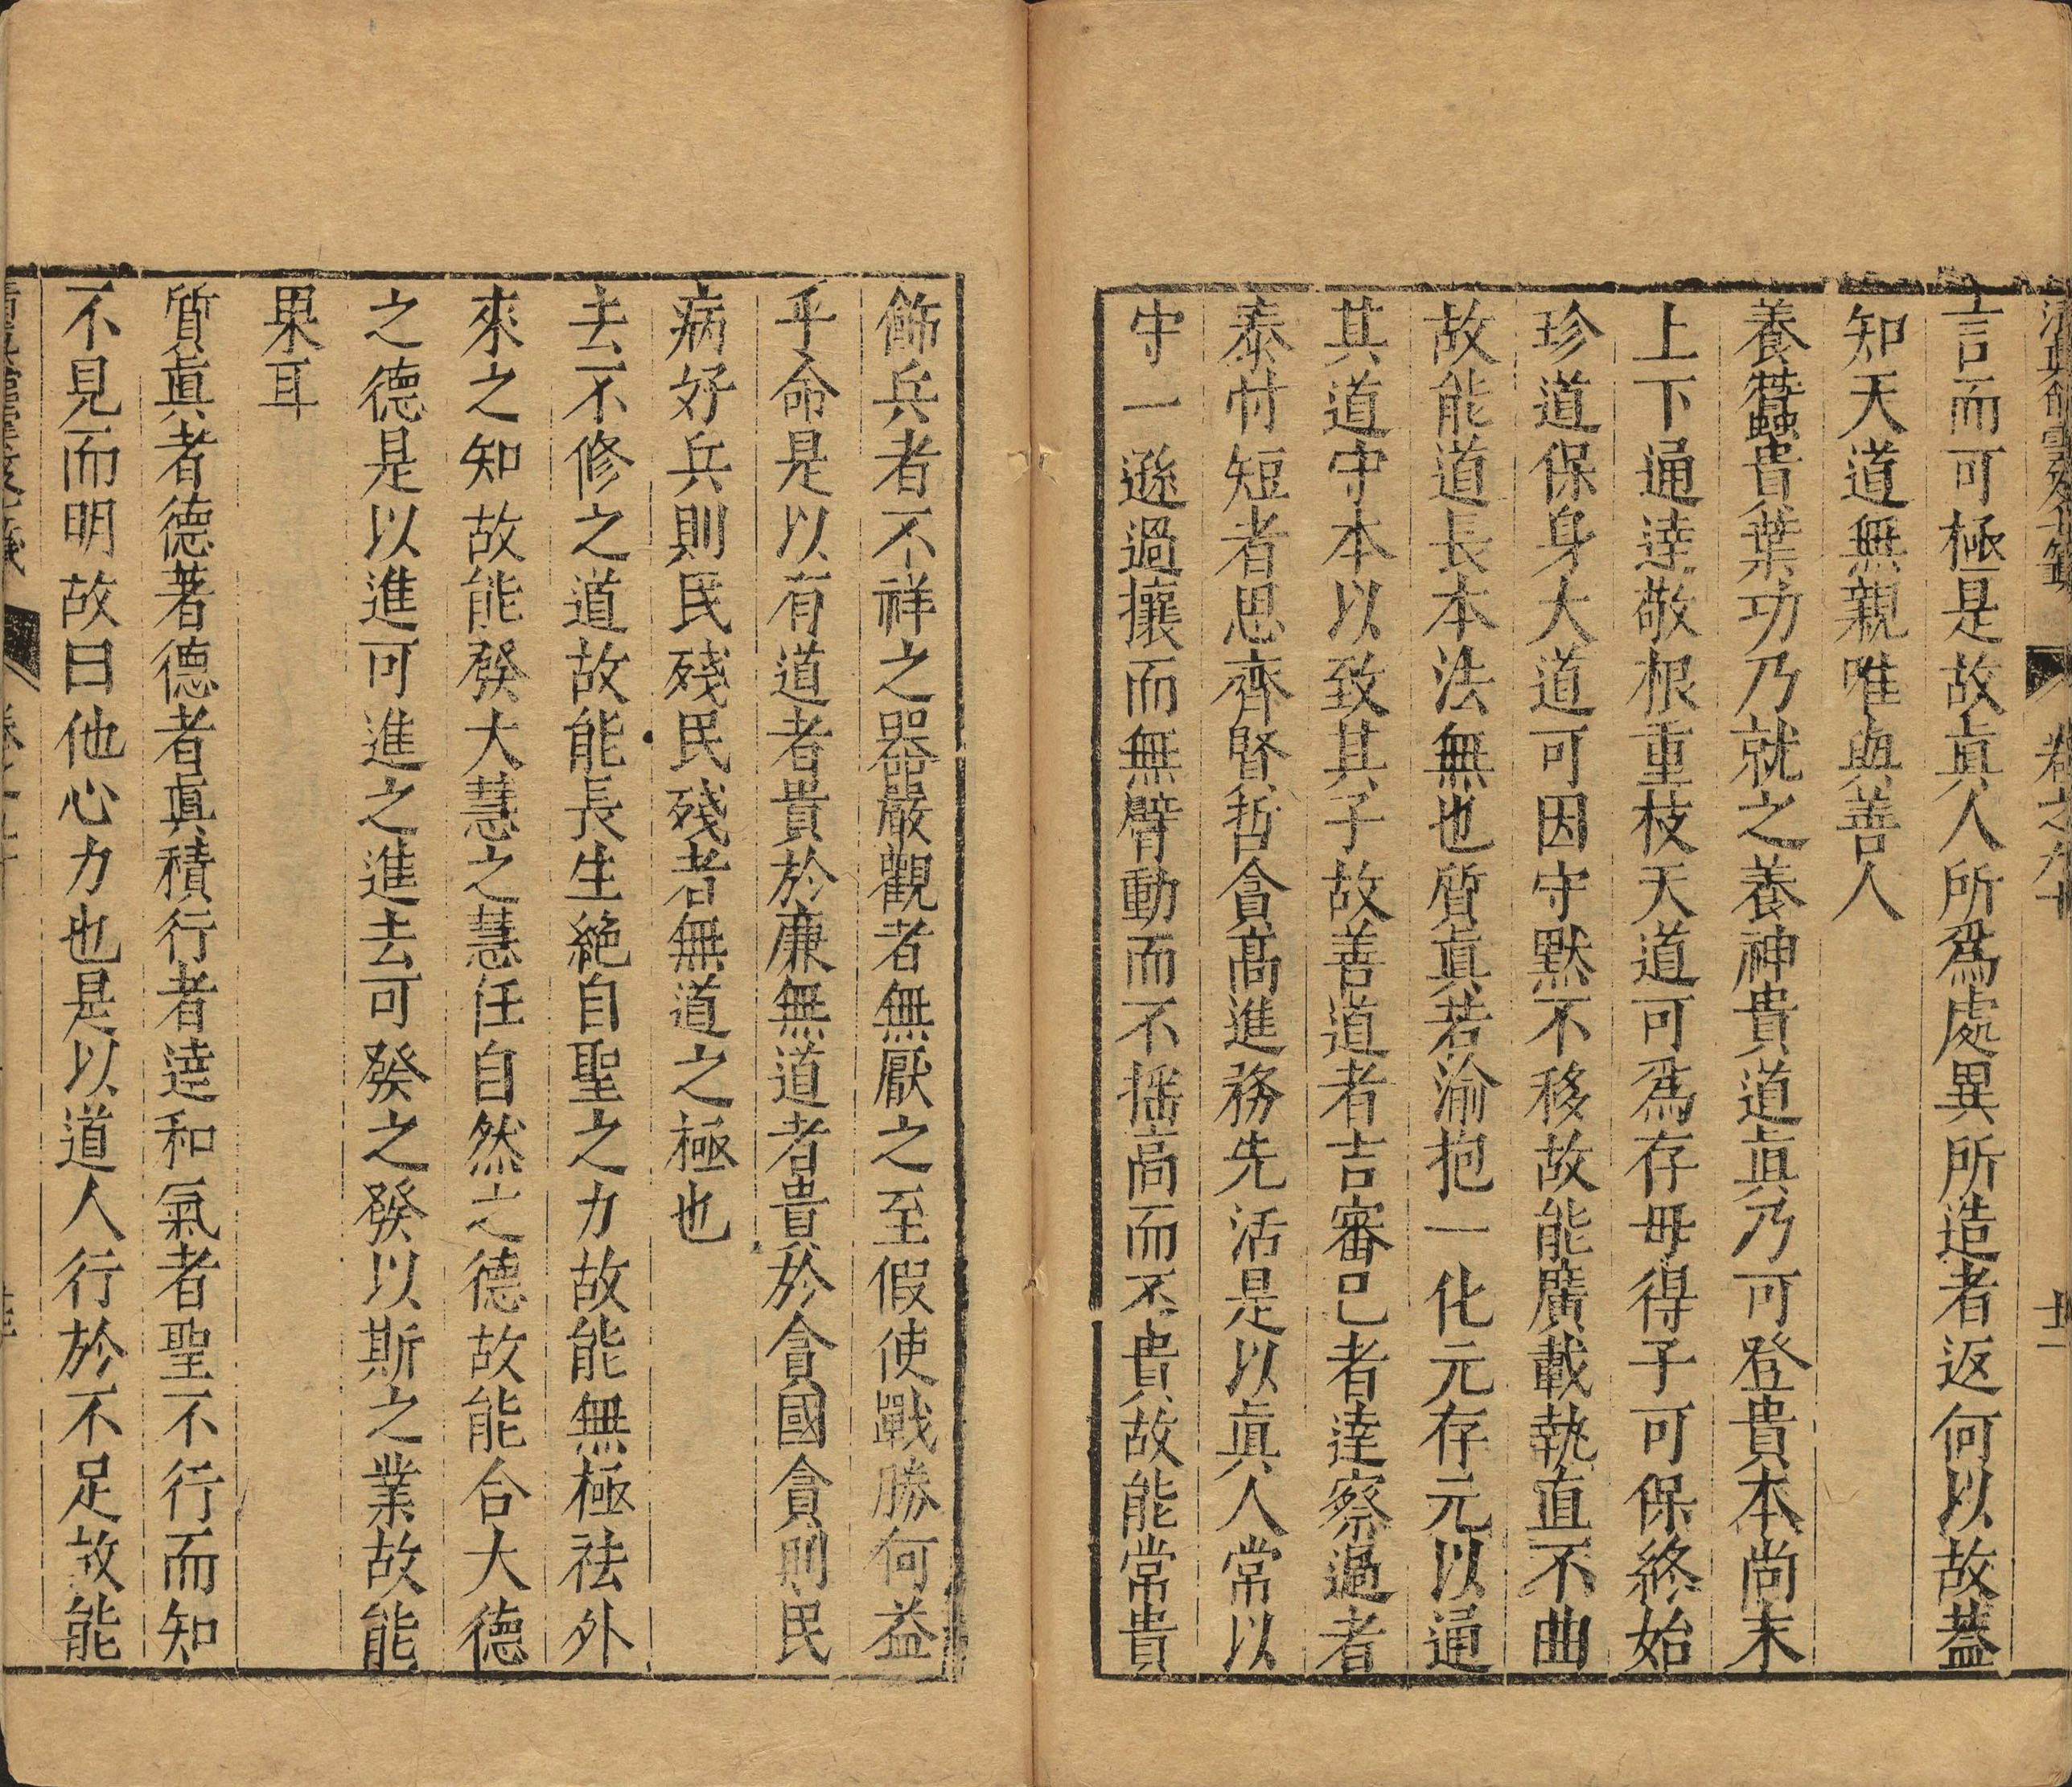 言而可極是故眞人所爲處異所造者返何以故蓋
知天道無親唯與善人
養蠶貴葉功乃就之養神貴道眞乃可登貴本尚末
上下通達敬根重枝天道可爲存母得子可保終始
珍道保身大道可因守默不移故能廣載執直不曲
故能道長本法無也質眞若渝抱一化元存元以通
其道守本以致其子故善道者吉審己者達察過者
泰忖短者思齊賢哲貪高進務先活是以眞人常以
守一遜過攘而無臂動而不揺高而不貴故能常貴
飾兵者不祥之器嚴觀者無厭之至假使戰勝何益
乎命是以有道者貴於廉無道者貴於貪國貪則民
病好兵則民殘民殘者無道之極也
去不修之道故能長生絶自聖之力故能無極祛外
來之知故能發大慧之慧任自然之德故能合大德
之德是以進可進之進去可發之發以斯之業故能
果耳
質眞者德著德者眞積行者達和氣者聖不行而知
不見而明故曰他心力也是以道人行於不足故能